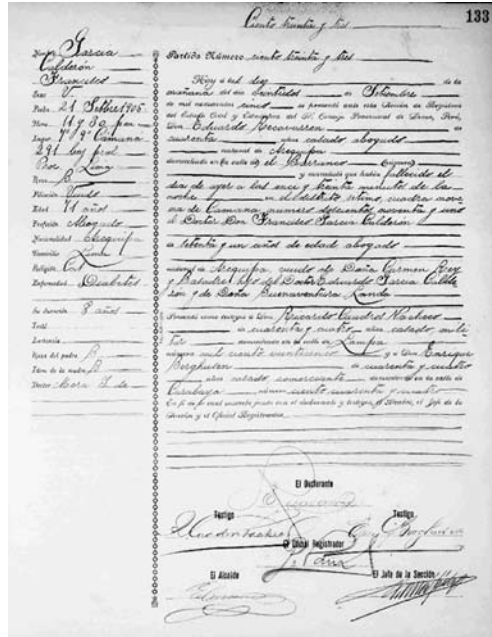 Ciento treinta y tres
133
Garcia
Calderón
Francisco
Sexo V
Fecha 21 Setbre 1905
Hora 11 y 30 p.m
Lugar 7º 9ª Camaná
291 Ley fcol
Proc Lima
Raza B
Filiación Viudo
Edad 71 años
Profesión Abogado
Nacionalidad Arequipa
Domicilio Lima
Religión Cat
Enfermedad Diabetes
Su duración 8 años
Testó
Lactancia
Raza del padre B
Idem de la madre B
Partida Número ciento treinta y tres
Hoy á las diez de la
mañana del día veintidos de Setiembre
de mil novecientos cinco se presentó ante esta Sección de Registros
del Estado Civil y Estadística del H. Concejo Provincial de Lima, Perú,
Don Eduardo Recavarren de
cuarenta años casado abogado
natural de Arequipa
domiciliado en la calle de el Barranco
y manifestó que había fallecido el
dia de ayer a las once y treinta minutos de la
noche en el distrito sétimo, cuadra nove
na de Camaná número doscientos noventa y uno
el Doctor Don Francisco Garcia Calderón
de setenta y un años de edad abogado
natural de Arequipa, viudo de Doña Carmen Rey
y Basadre, hijo del Doctor Eduardo Garcia Calde
rón y de Doña Buenaventura Landa
Presentó como testigos á Don Ricardo Cuadros
de cuarenta y cuatro años casado, mili
tar domiciliado en la calle de Lampa
número mil ciento veinticinco y á Don Enrique
Berghusen de cuarenta y cuatro
años casado comerciante domiciliado en la calle de
Carabaya número ciento cuarenta y cuatro
En fe de lo cual suscribo junto con el declarante y testigos, el Alcalde, el Jefe de la
Sección y el Oficial Registrador.
El Declarante
Testigo
Testigo
El Oficial Registrador
El Alcalde
El Jefe de la Sección